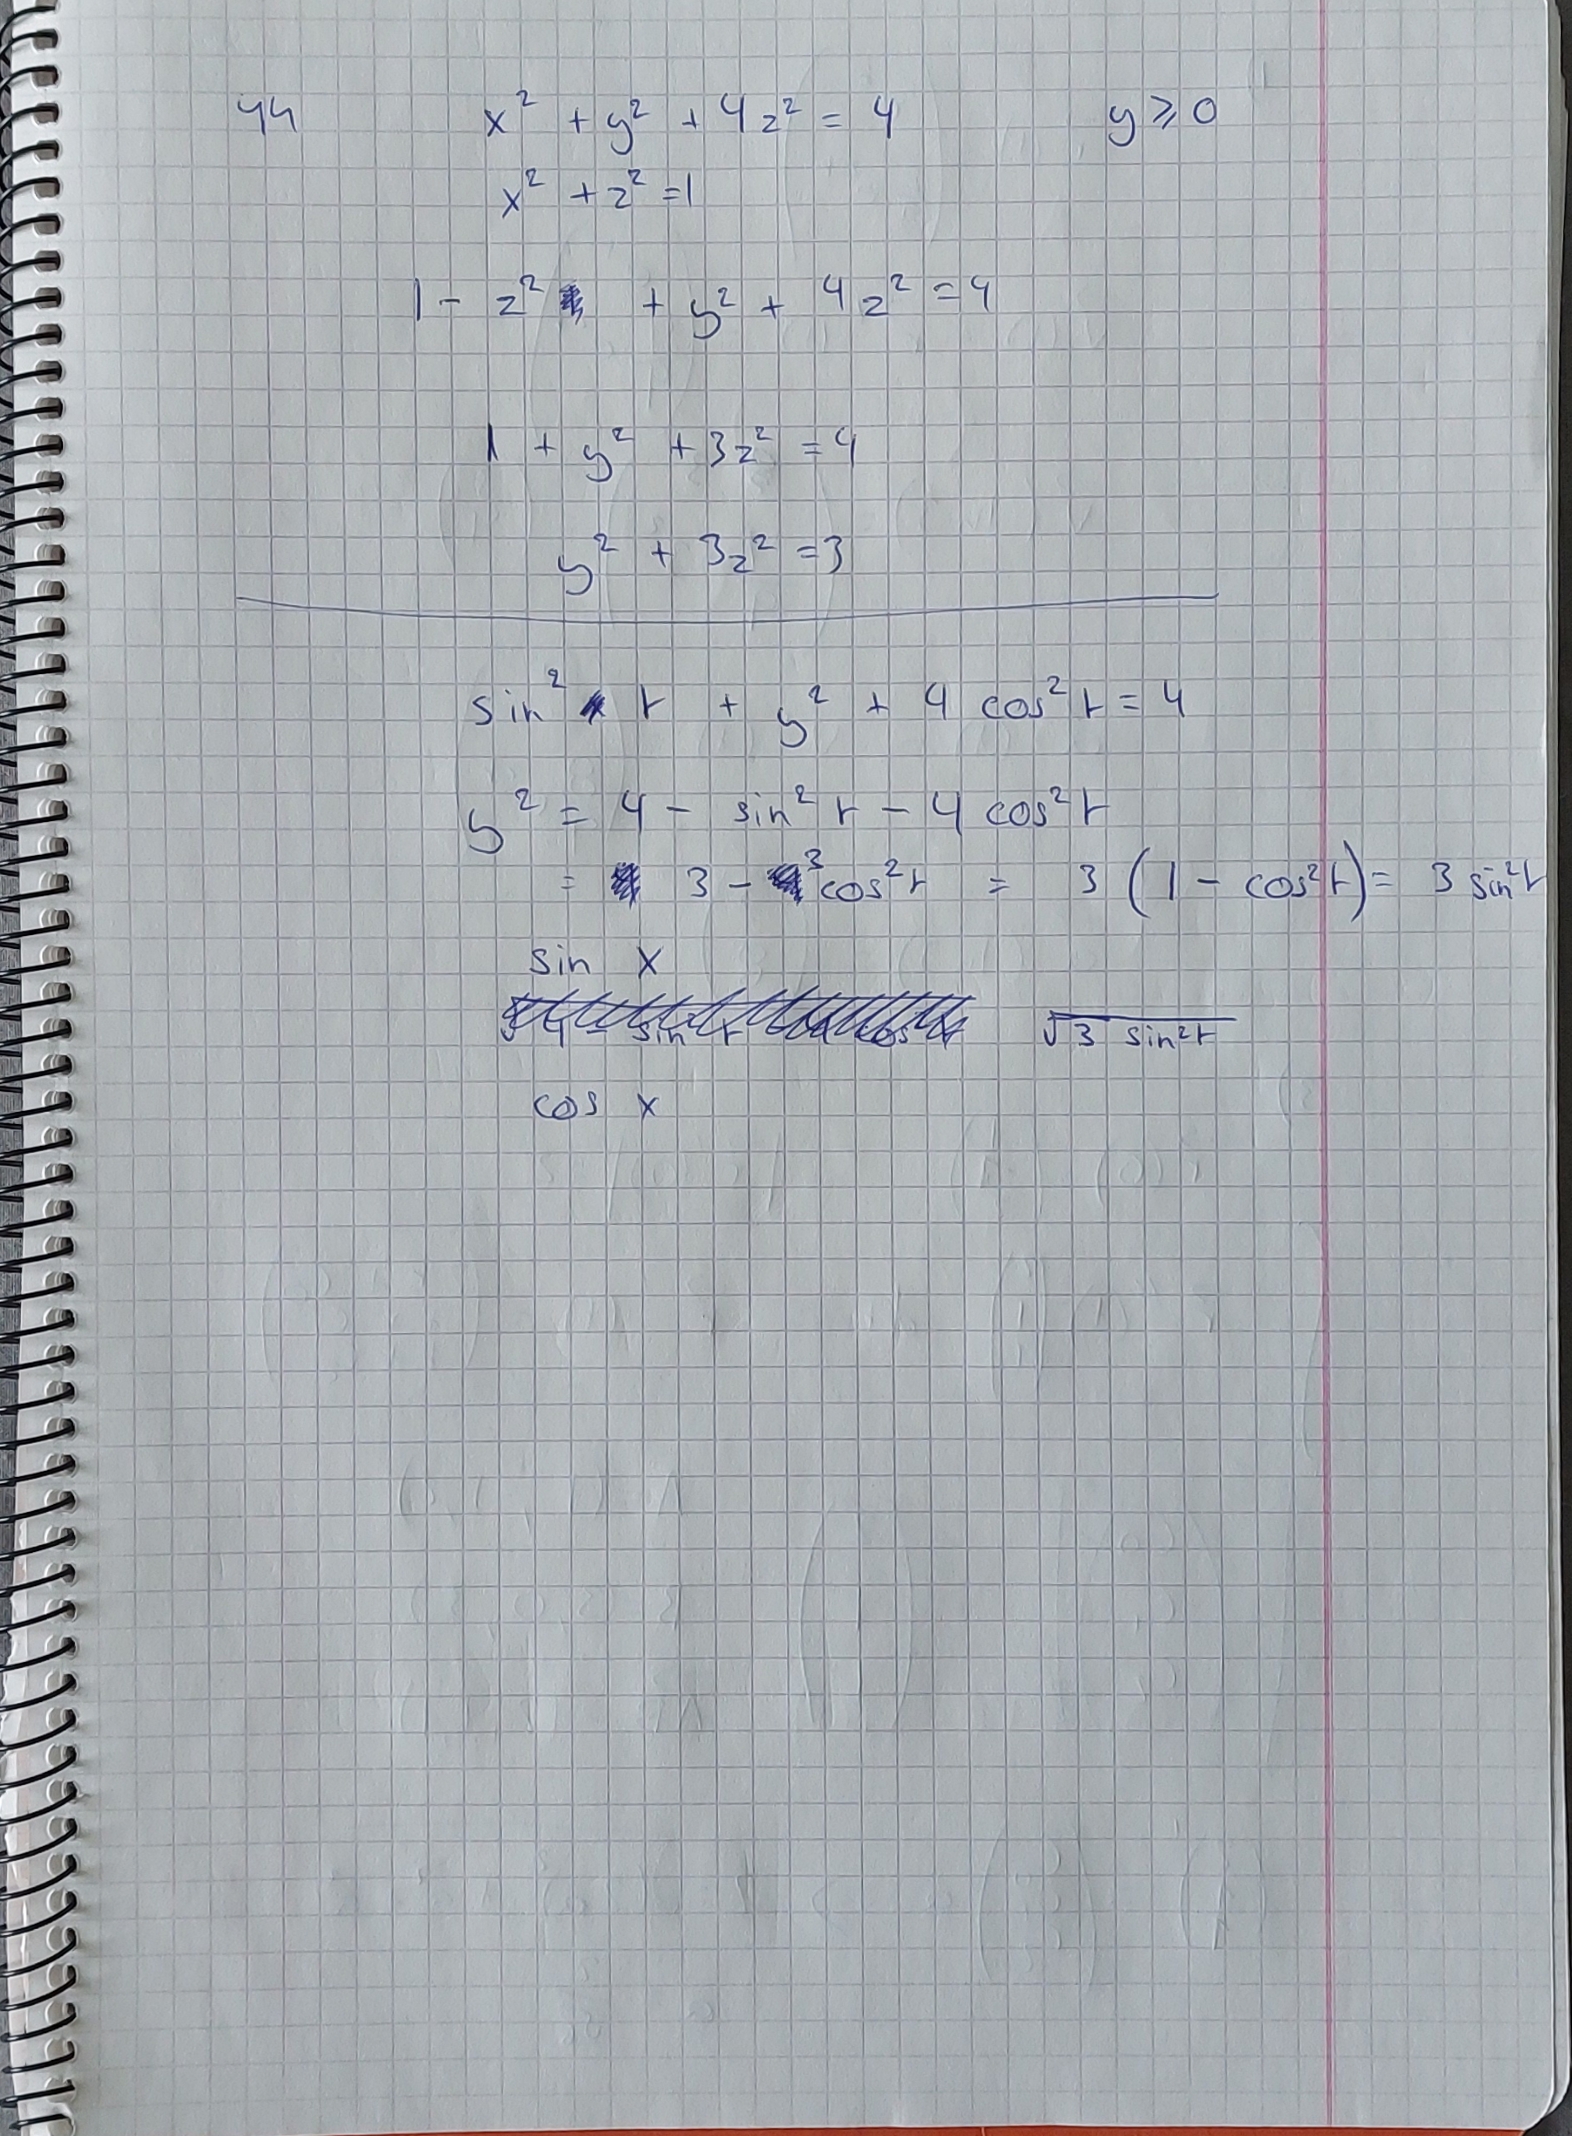 44 x² + y² + 4z² = 4 y ≥ 0
x² + z² = 1
1 - z² + y² + 4z² = 4
1 + y² + 3z² = 4
y² + 3z² = 3
sin² t + y² + 4 cos² t = 4
y² = 4 - sin² t - 4 cos² t
= 3 - 3 cos² t = 3 (1 - cos² t) = 3 sin² t
sin x
√3 sin² t
cos x